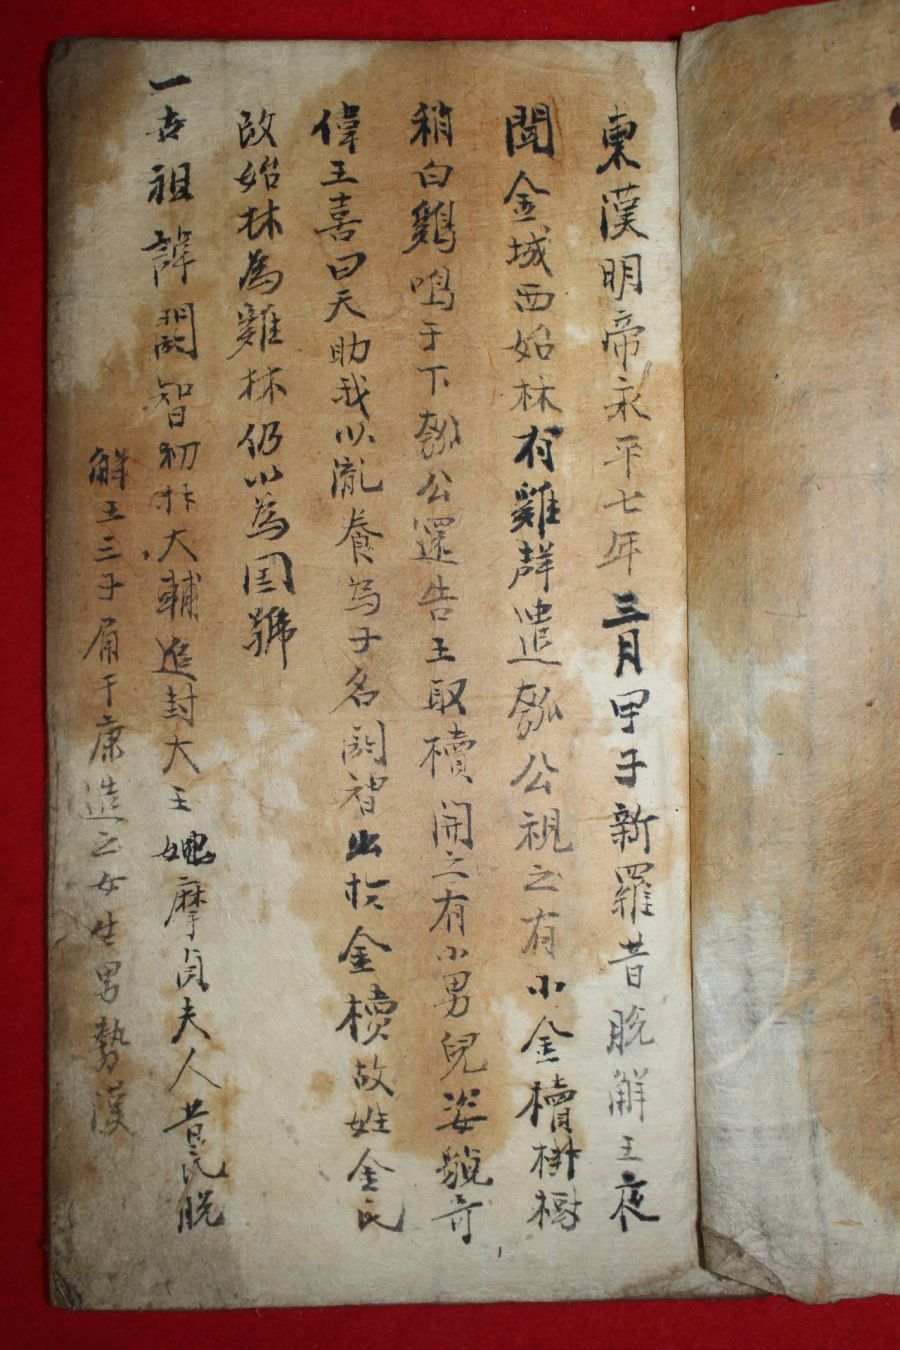 東漢明帝永平七年三月甲子新羅昔脫解王夜
聞金城西始林有雞聲遣瓠公視之有小金樻掛樹
稍白鷄鳴于下瓠公還告王取樻開之有小男兒姿貌奇
偉王喜曰天助我以胤養為子名閼智出於金樻故姓金氏
改始林為雞林仍以為国號
一古祖諱閼智初拜大輔追封大王媲摩貞夫人昔氏脫
解王三子角干康造之女生男勢漢